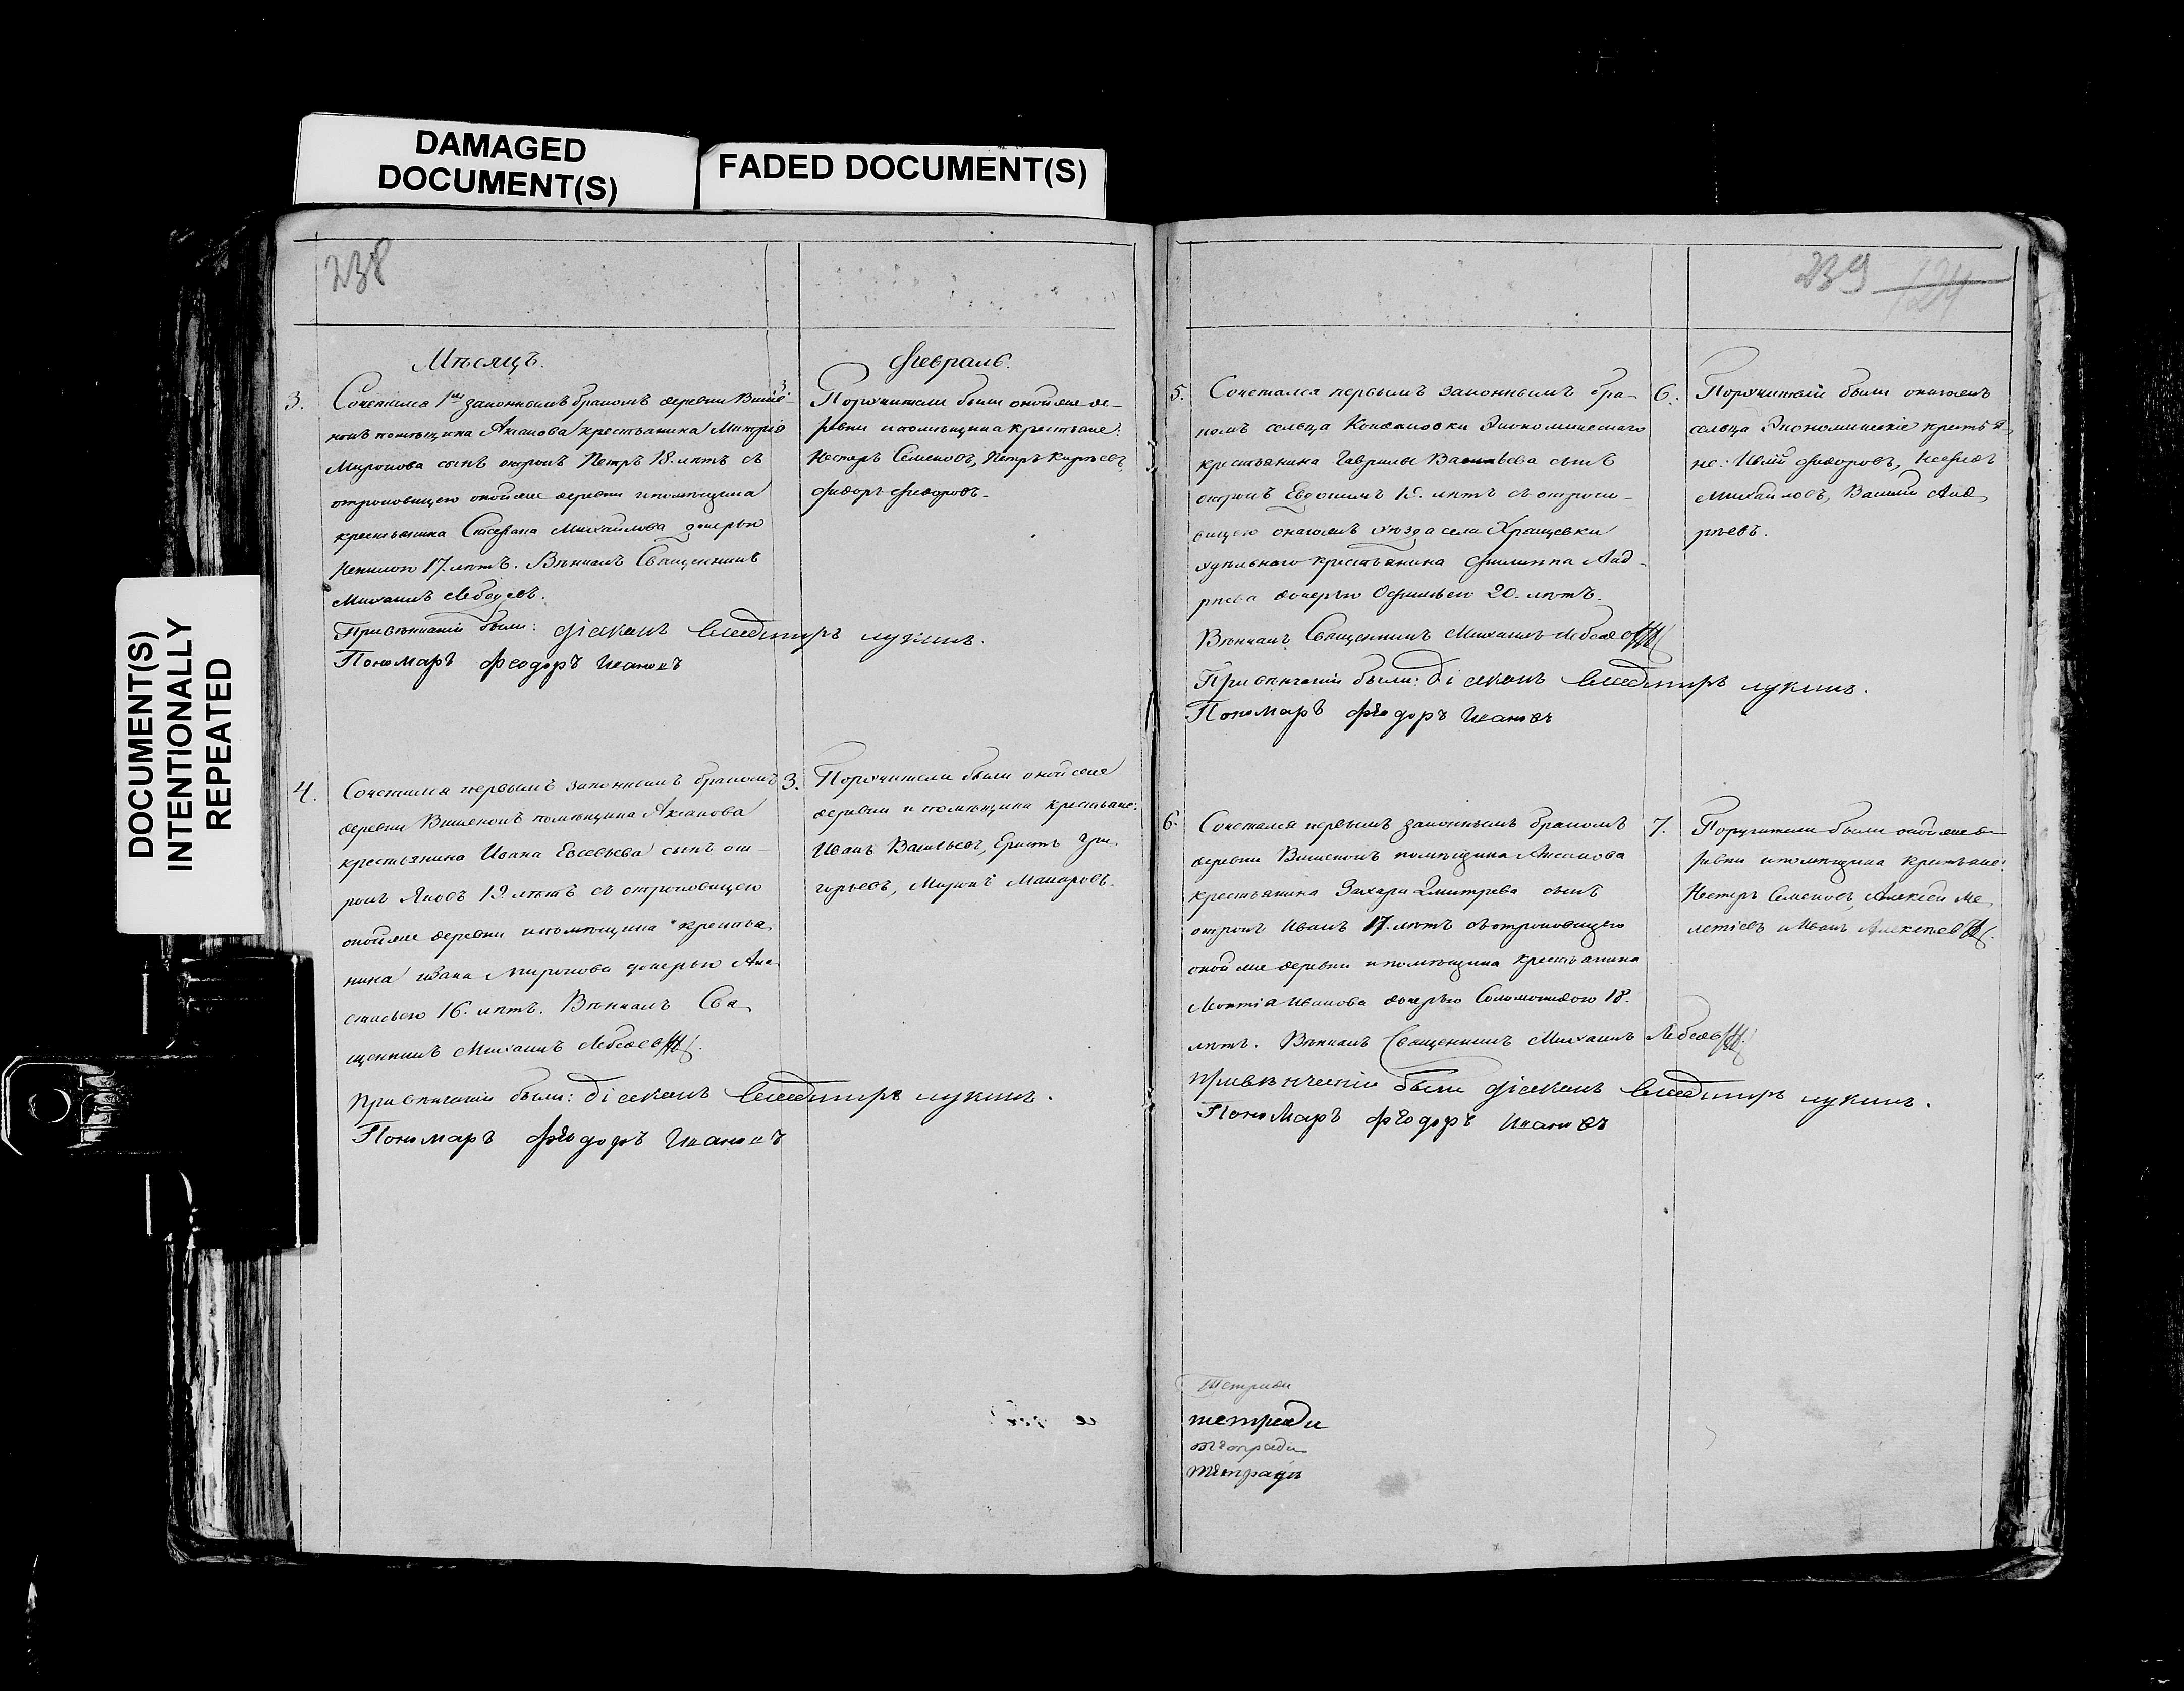 DAMAGED
DOCUMENT(S)
FADED DOCUMENT(S)
DOCUMENT(S)
INTENTIONALLY
REPEATED
238
Мѣсяцъ.
Февраль.
3. Сочетался 1мъ законнымъ бракомъ деревни Вишен-
помѣщика Аксакова крестьянина Митрія
Миронова сынъ отрокъ Петръ 18. лѣтъ съ
отроковицею оной же деревни и помѣщика
крестьянина Стефана Михайлова дочерью
17. лѣтъ. Вѣнчалъ Священникъ
Михаилъ Лебедевъ.
При вѣнчаніи были: діаконъ Владимиръ Лукинъ.
Пономарь Феодоръ Ивановъ
3
Поручители были оной же де-
ревни и помѣщика крестьяне:
Нестеръ Семеновъ, Петръ Кирѣевъ,
Федоръ Федоровъ.
4. Сочетался первымъ законнымъ бракомъ
деревни Вишенокъ помѣщика Аксакова
крестьянина Ивана Евсевьева сынъ от-
рокъ Яковъ 19. лѣтъ съ отроковицею
оной же деревни и помѣщика крестья-
нина Ивана Миронова дочерью Ана-
стасьею 16. лѣтъ. Вѣнчалъ Свя-
щенникъ Михаилъ Лебедевъ.
При вѣнчаніи были: діаконъ Владимиръ Лукинъ.
Пономарь Феодоръ Ивановъ
3. Поручители были оной же
деревни и помѣщика крестьяне:
Иванъ Васильевъ, Гри-
горьевъ, Миронъ Макаровъ.
239 124
5. Сочетался первымъ законнымъ бра-
комъ сельца Кондаковки Экономическаго
крестьянина Гаврилы Васильева сынъ
отрокъ Евдокимъ 19. лѣтъ съ отроко-
вицею онагожъ уѣзда села Хрящевки
удѣльнаго крестьянина Филиппа Анд-
рѣева дочерью 20. лѣтъ.
Вѣнчалъ Священникъ Михаилъ Лебедевъ
При вѣнчаніи были: діаконъ Владимиръ Лукинъ.
Пономарь Феодоръ Ивановъ
6. Поручители были онагожъ
сельца Экономическіе крестья-
не: Федоровъ,
Михайловъ, Василій Анд-
рѣевъ.
6. Сочетался первымъ законнымъ бракомъ
деревни Вишенокъ помѣщика Аксакова
крестьянина Захара Дмитрева сынъ
отрокъ Иванъ 17. лѣтъ съ отроковицею
оной же деревни и помѣщика крестьянина
Иванова дочерью Соломонидою 18.
лѣтъ. Вѣнчалъ Священникъ Михаилъ Лебедевъ
При вѣнчаніи были діаконъ Владимиръ Лукинъ.
Пономарь Феодоръ Ивановъ
7. Поручители были оной же де-
ревни и помѣщика крестьяне:
Нестеръ Семеновъ, Алексѣй Ме-
летіевъ и Иванъ Алексѣевъ.
тетради
тетради
тетради
тетрадь